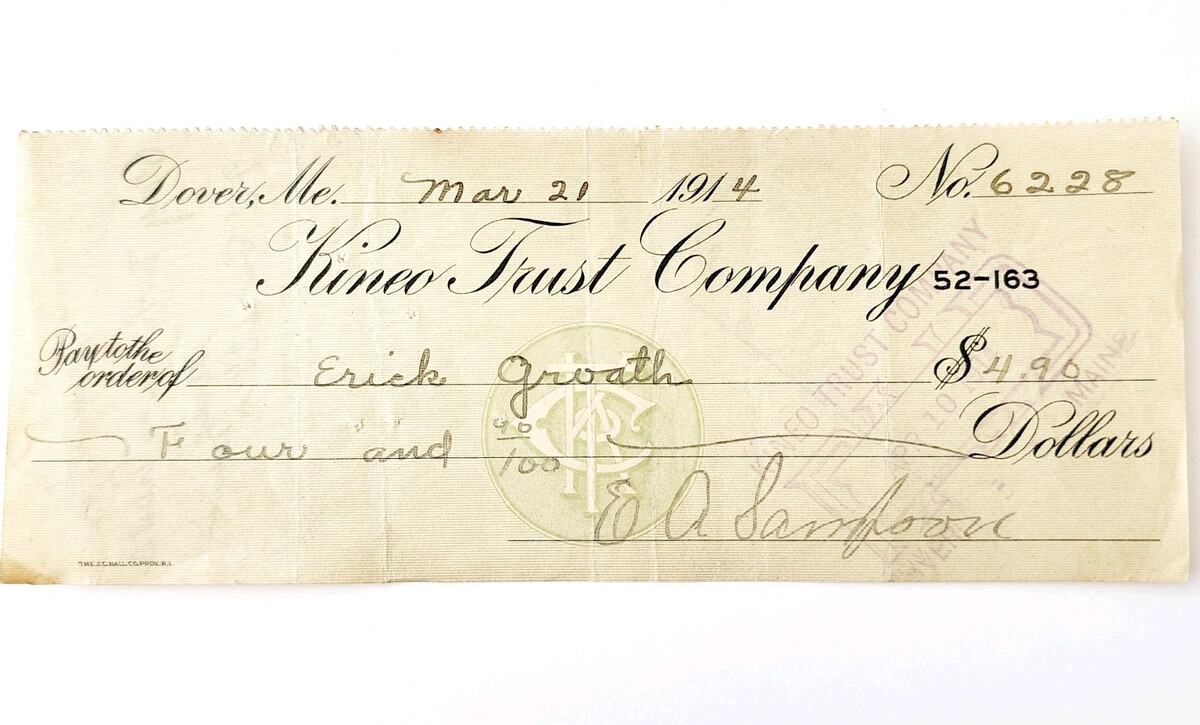 Dover, Me. Mar 21 1914 No. 6228
Kineo Trust Company 52-163
Pay to the order of Erick Groath $4.90
Four and 90/100 Dollars
E A Sampson
KINEO TRUST COMPANY
PAID
APR 10
MAINE
THE J.C. HALL CO. PROV. R.I.